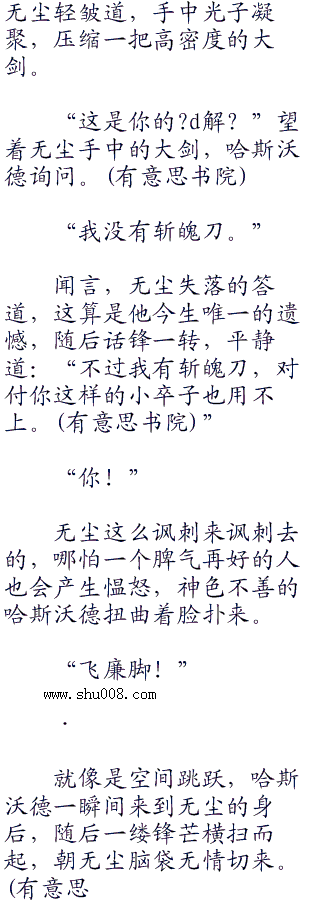 无尘轻皱道，手中光子凝
聚，压缩一把高密度的大
剑。
“这是你的?d解？”望
着无尘手中的大剑，哈斯沃
德询问。(有意思书院)
“我没有斩魄刀。”
闻言，无尘失落的答
道，这算是他今生唯一的遗
憾，随后话锋一转，平静
道：“不过我有斩魄刀，对
付你这样的小卒子也用不
上。(有意思书院)”
“你！”
无尘这么讽刺来讽刺去
的，哪怕一个脾气再好的人
也会产生愠怒，神色不善的
哈斯沃德扭曲着脸扑来。
“飞廉脚！”
www.shu008.com
.
就像是空间跳跃，哈斯
沃德一瞬间来到无尘的身
后，随后一缕锋芒横扫而
起，朝无尘脑袋无情切来。
(有意思